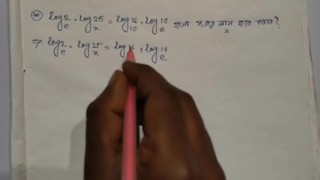 * logₑ2 · logₓ25 = log₁₀16 · logₑ10 হলে x এর মান কত ?
⇒ logₑ2 · logₓ25 = log 16 · logₑ10